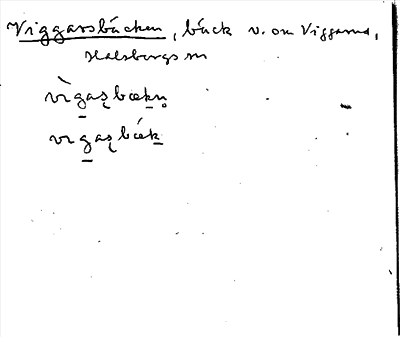 Viggarsbäcken, bäck v. om Viggarna,
Halsbergs sn
vìgaʂbækn̥
vigaʂbǽk